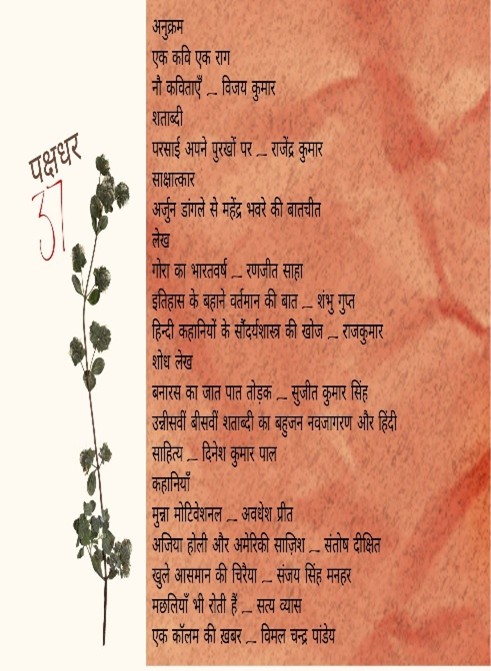 पक्षधर
37
अनुक्रम
एक कवि एक राग
नौ कविताएँ _ विजय कुमार
शताब्दी
परसाई अपने पुरखों पर _ राजेंद्र कुमार
साक्षात्कार
अर्जुन डांगले से महेंद्र भवरे की बातचीत
लेख
गोरा का भारतवर्ष _ रणजीत साहा
इतिहास के बहाने वर्तमान की बात _ शंभु गुप्त
हिन्दी कहानियों के सौंदर्यशास्त्र की खोज _ राजकुमार
शोध लेख
बनारस का जात पात तोड़क _ सुजीत कुमार सिंह
उन्नीसवीं बीसवीं शताब्दी का बहुजन नवजागरण और हिंदी
साहित्य _ दिनेश कुमार पाल
कहानियाँ
मुन्ना मोटिवेशनल _ अवधेश प्रीत
अजिया होली और अमेरिकी साज़िश _ संतोष दीक्षित
खुले आसमान की चिरैया _ संजय सिंह मनहर
मछलियाँ भी रोती हैं _ सत्य व्यास
एक कॉलम की ख़बर _ विमल चन्द्र पांडेय